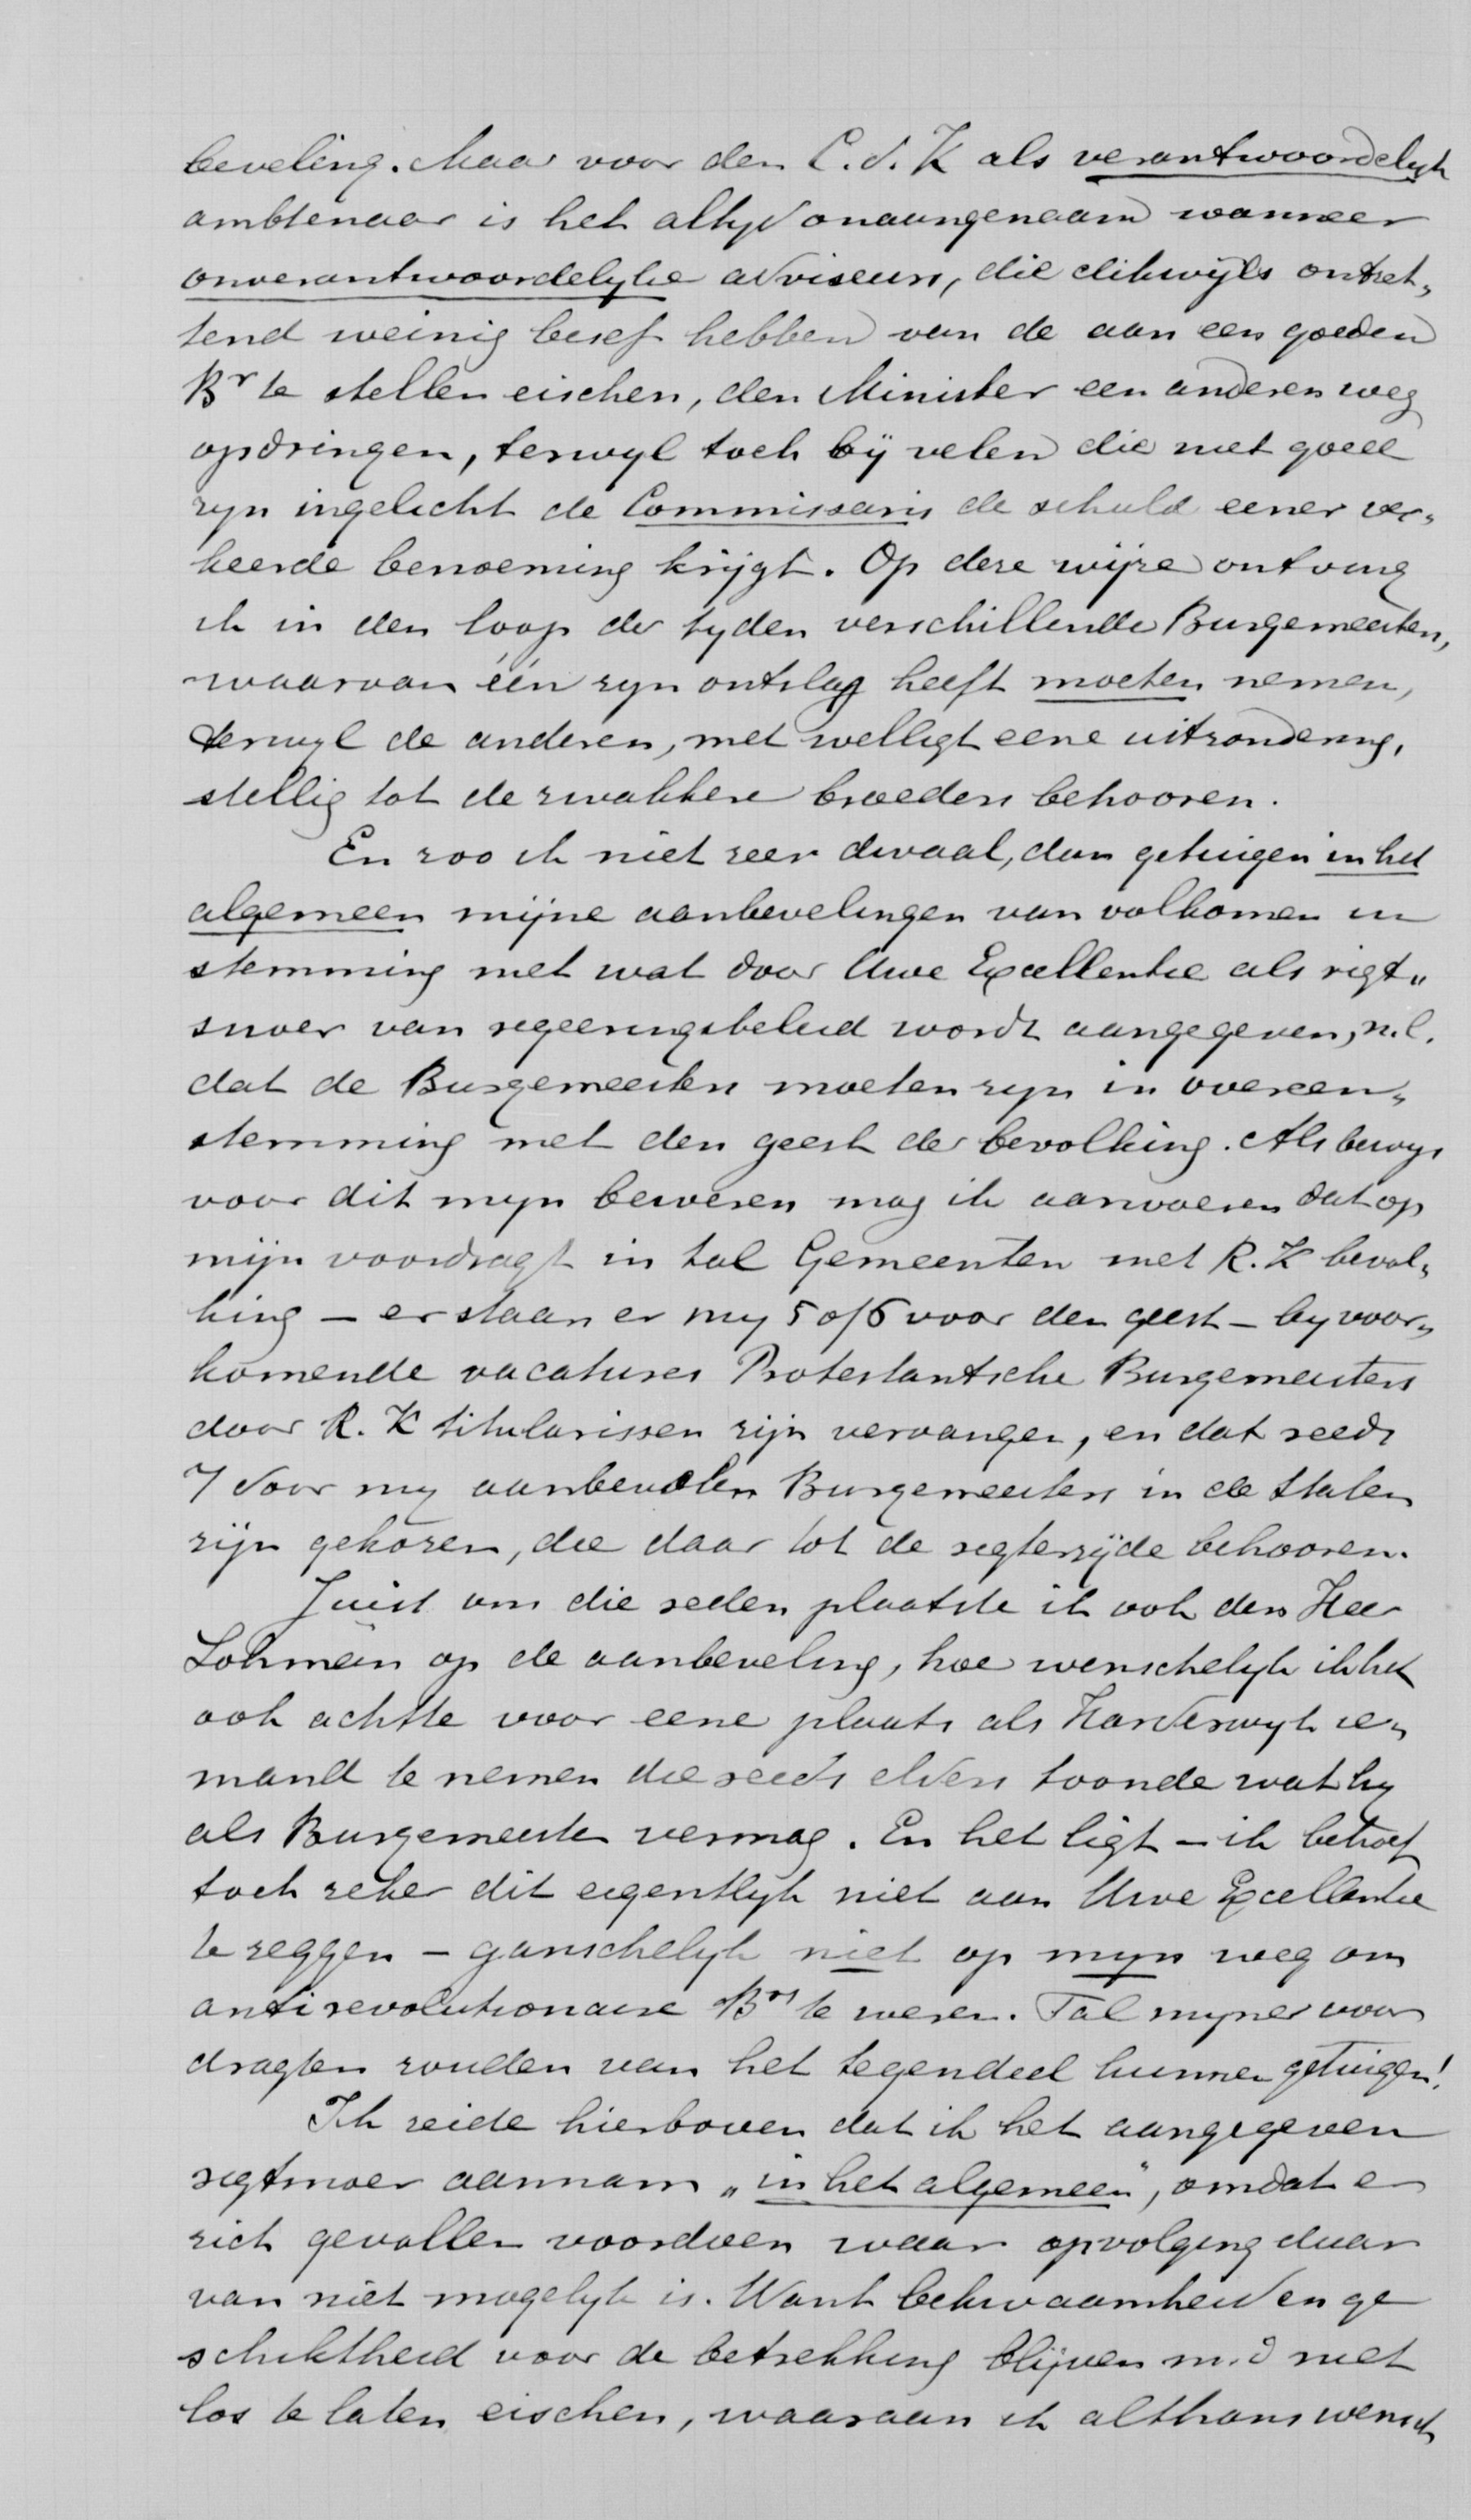 beveling. Maar voor den C.d.K als verantwoordelyk
ambtenaar is het altyd onaangenaam wanneer
onverantwoordelyke adviseurs, die dikwijls ontzet„
tend weinig besef hebben van de aan een goeden
Br te stellen eischen, den Minister een anderen weg
opdringen, terwyl toch bij velen die niet goed
zyn ingelicht de Commissaris de schuld eener ver„
keerde benoeming krijgt. Op deze wijze ontving
ik in den loop der tyden verschillende Burgemeesters,
waarvan één zyn ontslag heeft moeten nemen,
terwyl de anderen, met welligt eene uitzondering,
stellig tot de zwakkere broeders behooren.
En zoo ik niet zeer dwaal, dan getuigen in het
algemeen mijne aanbevelingen van volkomen in
stemming met wat door Uwe Excellentie als rigt„
snoer van regeeringsbeleid wordt aangegeven, n.l.
dat de Burgemeesters moeten zyn in overeen„
stemming met den geest der bevolking. Als bewys
voor dit myn beweren mag ik aanvoeren dat op
mijn voordragt in tal Gemeenten met R.K bevol„
king – er staan er my 5 of 6 voor den geest – by voor„
komende vacatures Protestantsche Burgemeesters
door R.K titularissen zijn vervangen, en dat reeds
7 door my aanbevolen Burgemeesters in de Staten
zijn gekozen, die daar tot de regterzijde behooren.
Juist om die reden plaatste ik ook den Heer
Lohman op de aanbeveling, hoe wenschelyk ik het
ook achtte voor eene plaats als Harderwyk ie„
mand te nemen die reeds elders toonde wat hy
als Burgemeester vermag. En het ligt – ik behoef
toch zeker dit eigentlyk niet aan Uwe Excellentie
te zeggen – ganschelyk niet op myn weg om
antirevolutionaire Brs te weren. Tal myner voor
dragten zouden van het tegendeel kunnen getuigen!
Ik zeide hierboven dat ik het aangegeven
rigtsnoer aannam „in het algemeen", omdat er
zich gevallen voordoen waar opvolging daar
van niet mogelyk is. Want bekwaamheid en ge
schiktheid voor de betrekking blijven m.i niet
los te laten eischen, waaraan ik althans wensch